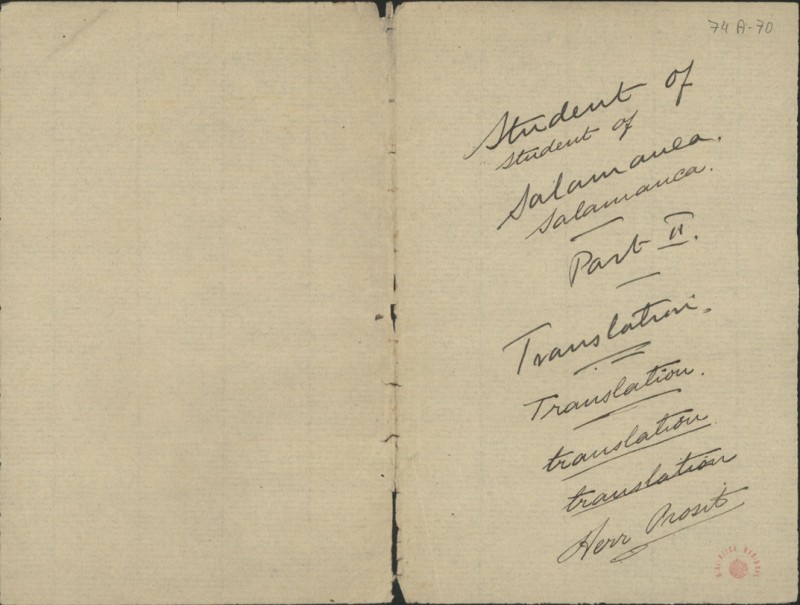 74 A-70
Student of
Student of
Salamanca.
Salamanca.
Part II.
Translation.
Translation.
translation
translation
Herr Prosit